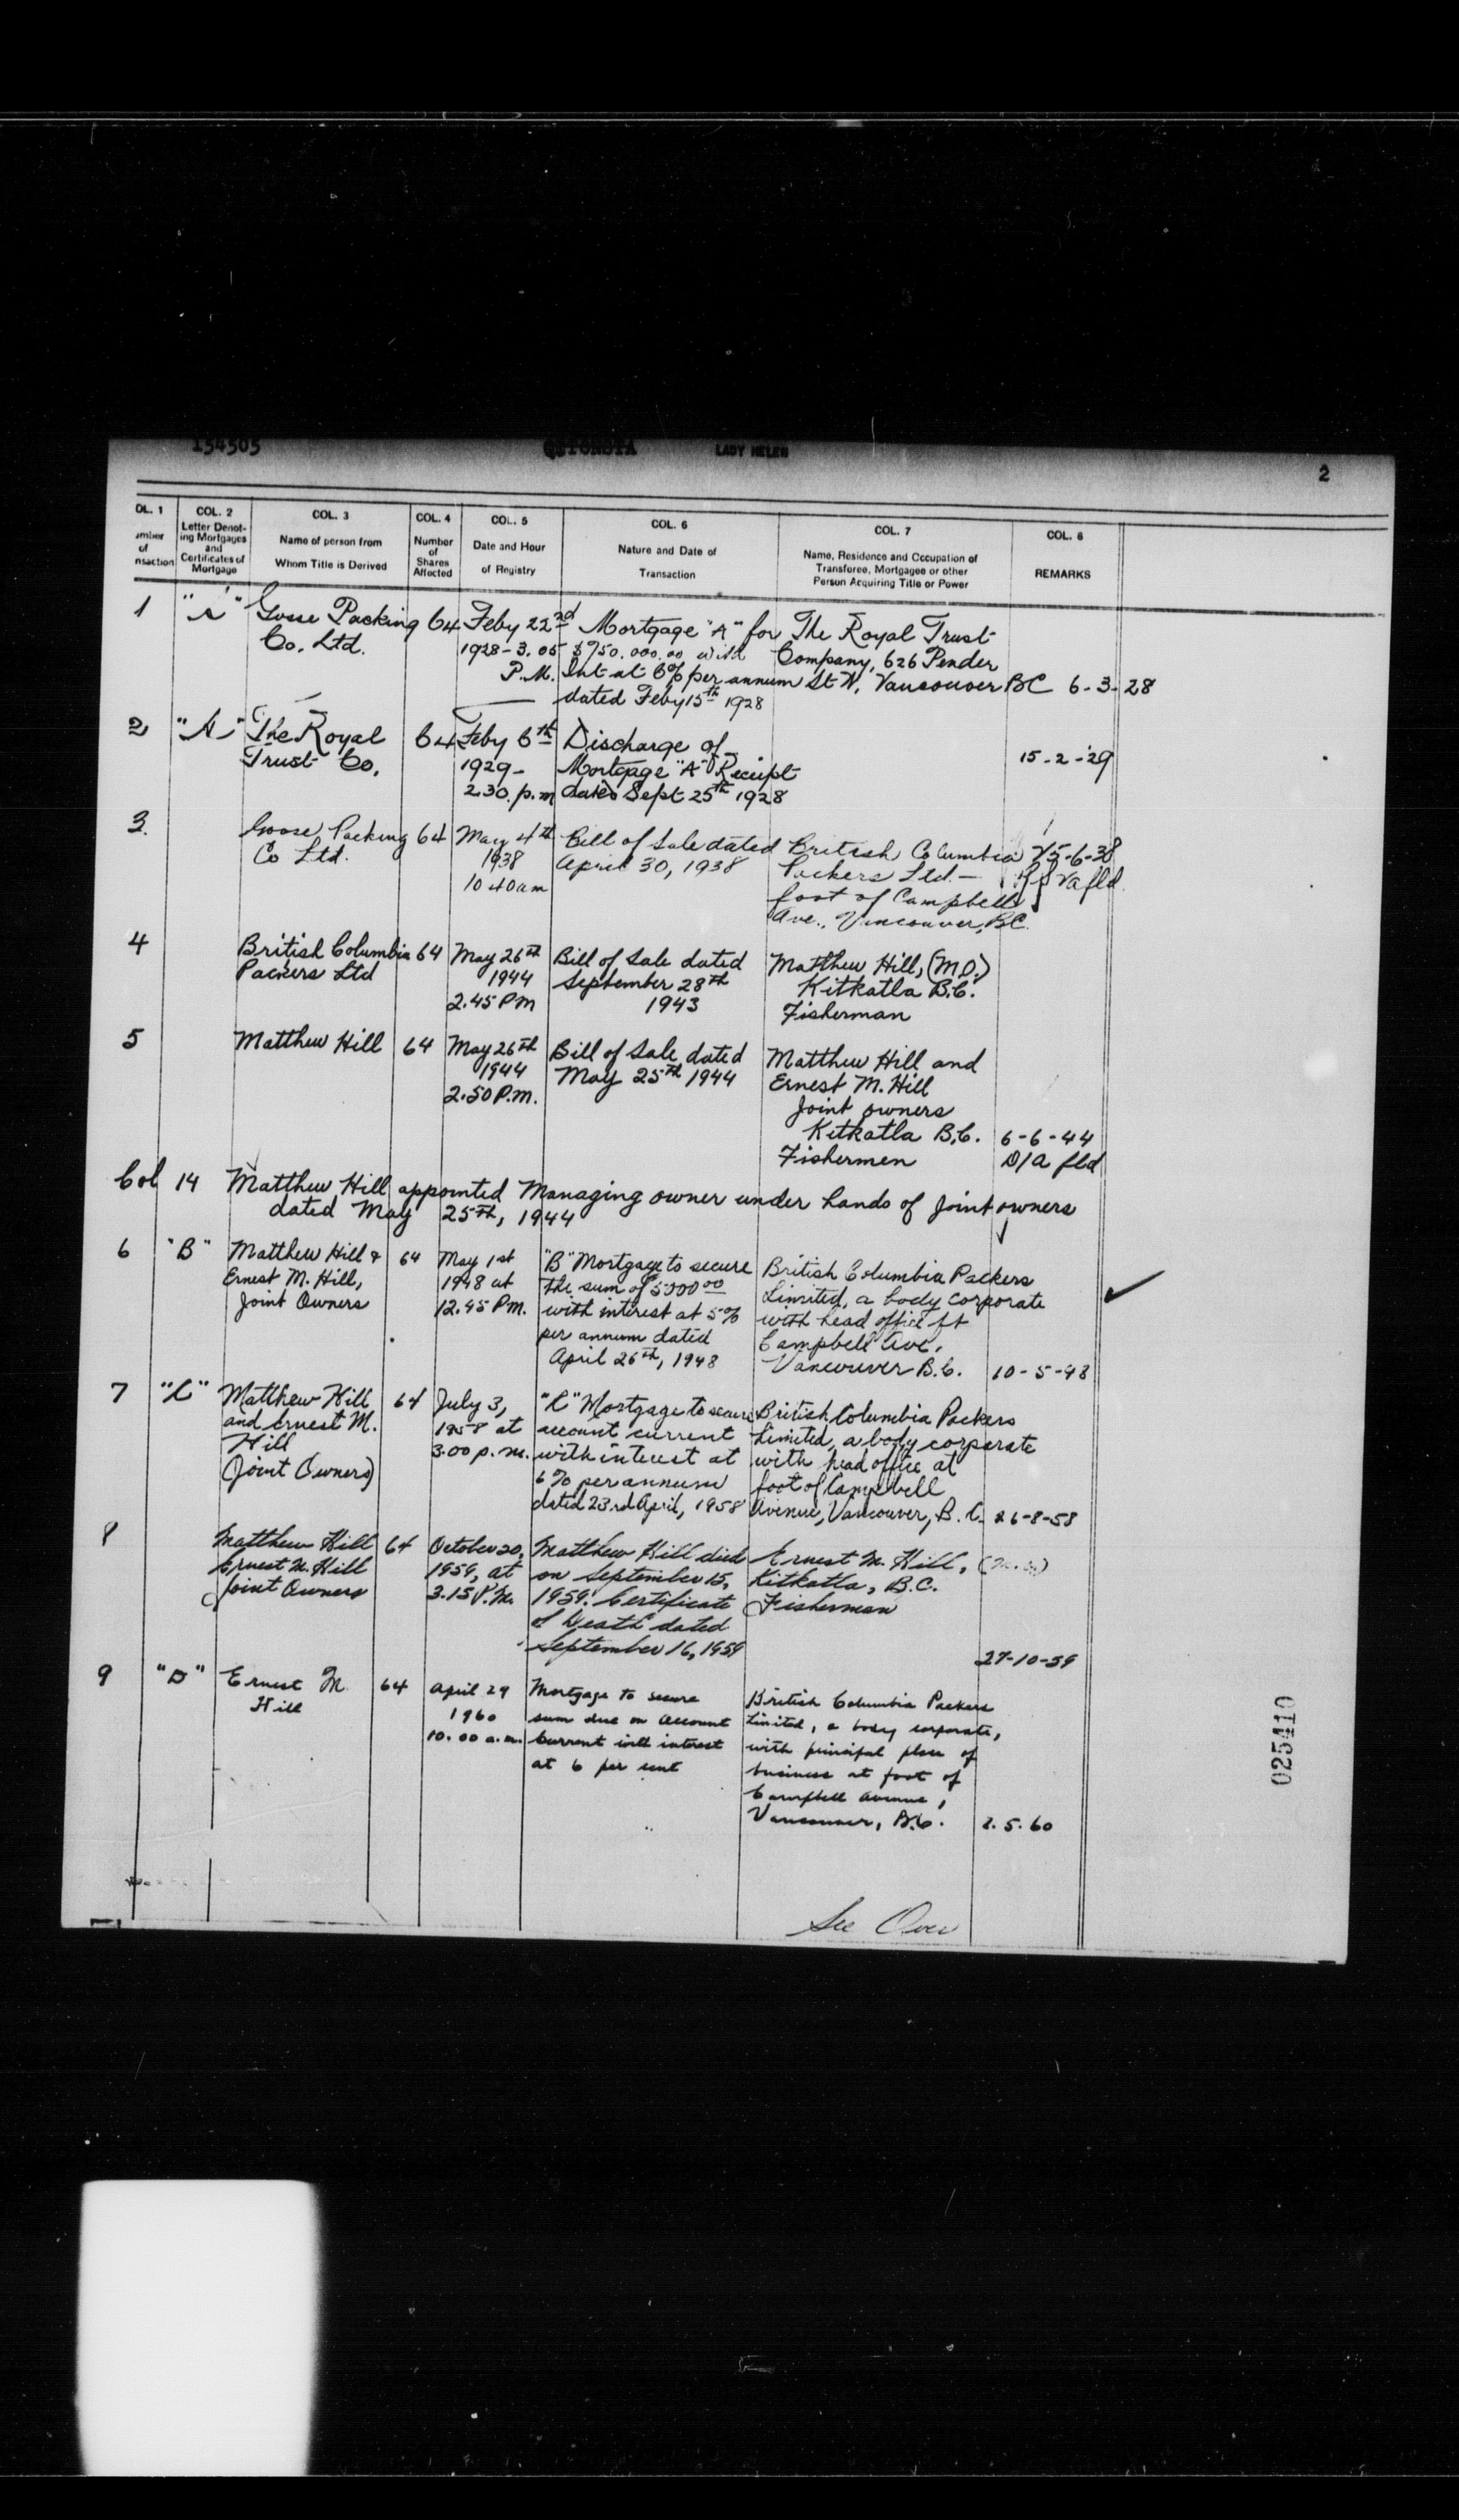 154505 LADY HELEN
2
OL. 1 COL. 2 COL. 3 COL. 4 COL. 5 COL. 6 COL. 7 COL. 8
umber of nsaction
Letter Denoting Mortgages and Certificates of Mortgage
Name of person from Whom Title is Derived
Number of Shares Affected
Date and Hour of Registry
Nature and Date of Transaction
Name, Residence and Occupation of Transferee, Mortgagee or other Person Acquiring Title or Power
REMARKS
1 "A" Gosse Packing 64 Feby 22nd Mortgage "A" for The Royal Trust
Co. Ltd. 1928-3.05 $750.000.00 with Company, 626 Pender
P.M. Int at 6% per annum St W, Vancouver BC 6-3-28
dated Feby 15th 1928
2 "A" The Royal 64 Feby 6th Discharge of
Trust Co. 1929- Mortgage "A" Receipt 15-2-29
2.30.p.m dated Sept 25th 1928
3. Gosse Packing 64 May 4th Bill of Sale dated British Columbia 25-6-38
Co Ltd. 1938 April 30, 1938 Packers Ltd.-
10 40 am foot of Campbell
Ave., Vancouver, BC.
4 British Columbia 64 May 26th Bill of Sale dated Matthew Hill, (M.O.)
Packers Ltd 1944 September 28th Kitkatla B.C.
2.45 PM 1943 Fisherman
5 Matthew Hill 64 May 26th Bill of Sale dated Matthew Hill and
1944 May 25th 1944 Ernest M. Hill
2.50 P.m. Joint owners
Kitkatla B.C. 6-6-44
Fishermen D/a fld
Col 14 Matthew Hill appointed Managing owner under hands of joint owners
dated May 25th, 1944
6 "B" Matthew Hill & 64 May 1st "B" Mortgage to secure British Columbia Packers
Ernest M. Hill, 1948 at the sum of 5000 00 Limited, a body corporate
Joint Owners 12.45 P.m. with interest at 5% with head office ft
per annum dated Campbell Ave,
April 26th, 1948 Vancouver B.C. 10-5-48
7 "C" Matthew Hill 64 July 3, "C" Mortgage to secure British Columbia Packers
and Ernest M. 1958 at account current Limited, a body corporate
Hill 3.00 p.m. with interest at with head office at
(Joint Owners) 6% per annum foot of Campbell
dated 23rd April, 1958 Avenue, Vancouver, B.C. 26-8-58
8 Matthew Hill 64 October 20, Matthew Hill died Ernest M. Hill,
Ernest M. Hill 1959, at on September 15, Kitkatla, B.C.
Joint Owners 3.15 P.M. 1959. Certificate Fisherman
of Death dated
September 16, 1959
27-10-59
9 "D" Ernest M. 64 April 29 Mortgage to secure British Columbia Packers
Hill 1960 sum due on Account Limited, a body corporate,
10.00 a.m. Current with interest with principal place of
at 6 per cent business at foot of
Campbell Avenue,
Vancouver, B.C. 2.5.60
See Over
025410